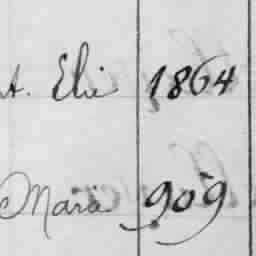 St. Elie 1864
Maria 909